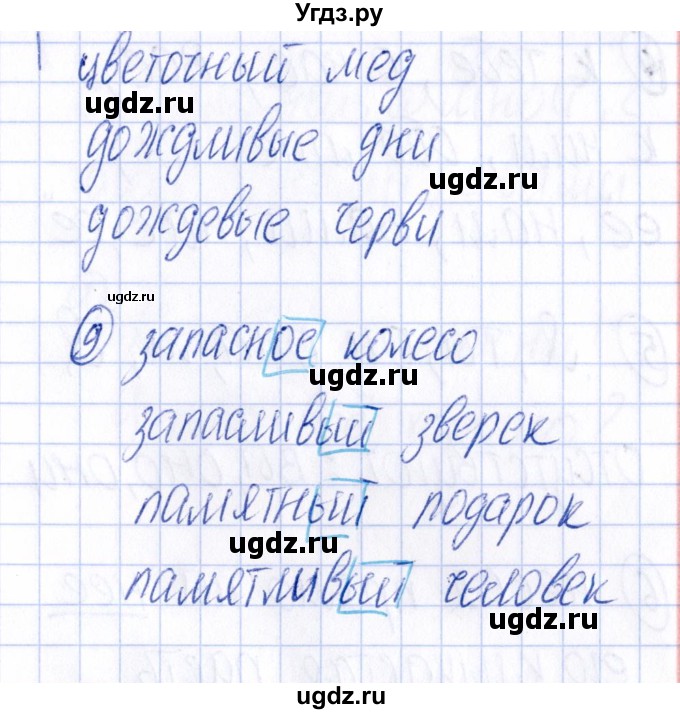 Угдз.ру
цветочный мед
ugdz.ru
дождливые дни
ugdz.ru
дождевые черви
ugdz.ru
9 запасное колесо
ugdz.ru
запасливый зверек
памятный подарок
ugdz.ru
памятливый человек
ugdz.ru
ugdz.ru